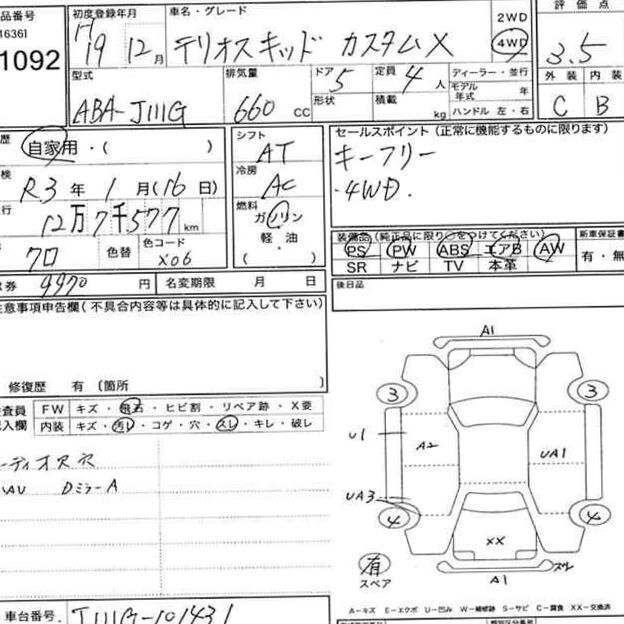 品番号 初度登録年月 車名・グレード 2WD 評価点
16361
1092 19 12月 テリオスキッド カスタムX 4WD 3.5
型式 排気量 ドア 5 定員 4人 ディーラー・並行 外装 内装
モデル年式 年
ABA-J111G 660cc 形状 積載 kg ハンドル 左・右 C B
歴 自家用・( ) シフト AT セールスポイント(正常に機能するものに限ります)
キーフリー
検 R.3年 1月(16日) 冷房 AC ・4WD.
行 12万7千577km 燃料 ガソリン
軽・油
( )
装備品(純正品に限り○をつけてください) 新車保証書
PS PW ABS エアB AW 有・無
SR ナビ TV 本革
70 色替 色コード X06
券 9970円 名変期限 月 日 後日品
意事項申告欄(不具合内容等は具体的に記入して下さい)
修復歴 有(箇所 )
査員 FW キズ・飛石・ヒビ割・リペア跡・X要
記入欄 内装 キズ・汚レ・コゲ・穴・スレ・キレ・破レ
ーディオス穴
NAV Dミラー A
A1
3 3
U1 A2 UA1
UA3
4 4
XX
有 スペア
A1 スレ
A-キズ E-エクボ U-凹み W-補修跡 S-サビ C-腐食 XX-交換済
車台番号 J111G-101431